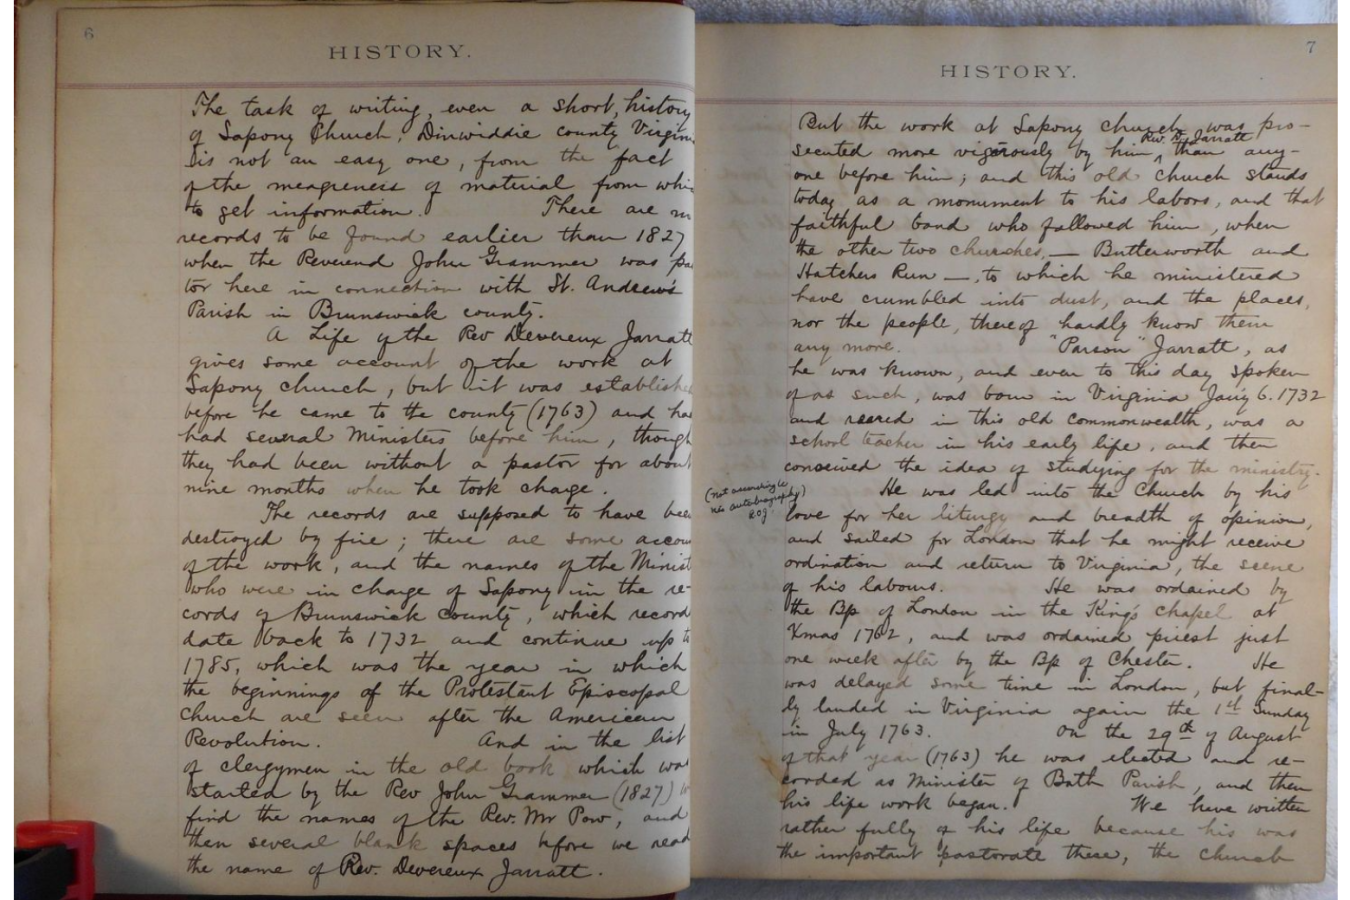 6
HISTORY.
The task of writing, even a short, history
of Sapony Church, Dinwiddie county Virgin
is not an easy one, from the fact
of the meagreness of material from whi
to get information. There are n
records to be found earlier than 1827
when the Reverend John Grammer was pa
tor here in connection with St. Andrew's
Parish in Brunswick county.
A Life of the Rev Devereux Jarratt
gives some account of the work at
Sapony church, but it was establishe
before he came to the county (1763) and ha
had several Ministers before him, though
they had been without a pastor for about
nine months when he took charge.
The records are supposed to have bee
destroyed by fire; there are some accou
of the work, and the names of the Minist
who were in charge of Sapony in the re-
cords of Brunswick County, which record
date back to 1732 and continue up t
1785, which was the year in which
the beginnings of the Protestant Episcopal
Church are seen after the American
Revolution. And in the list
of clergymen in the old book which wa
started by the Rev John Grammer (1827) w
find the names of the Rev. Mr Pow, and
then several blank spaces before we read
the name of Rev. Devereux Jarratt.
7
HISTORY.
But the work at Sapony church was pro-
Rev. D. Jarratt
secuted more vigorously by him, than any-
one before him; and this old church stands
today as a monument to his labors, and that
faithful band who followed him, when
the other two churches, — Butterworth and
Hatchers Run —, to which he ministered
have crumbled into dust, and the places,
nor the people, thereof hardly know them
any more. "Parson" Jarratt, as
he was known, and even to this day spoken
of as such, was born in Virginia Jan'y 6. 1732
and reared in this old commonwealth, was a
school teacher in his early life, and then
conceived the idea of studying for the ministry.
He was led into the Church by his
(not according to
his autobiography)
love for her liturgy and breadth of opinion,
and sailed for London that he might receive
ordination and return to Virginia, the scene
of his labours. He was ordained by
the Bp of London in the King's chapel at
Xmas 1762, and was ordained priest just
one week after by the Bp of Chester. He
was delayed some time in London, but final-
ly landed in Virginia again the 1st Sunday
in July 1763. On the 29th of August
of that year (1763) he was elected and re-
corded as Minister of Bath Parish, and then
his life work began. We have written
rather fully of his life because his was
the important pastorate these, the church